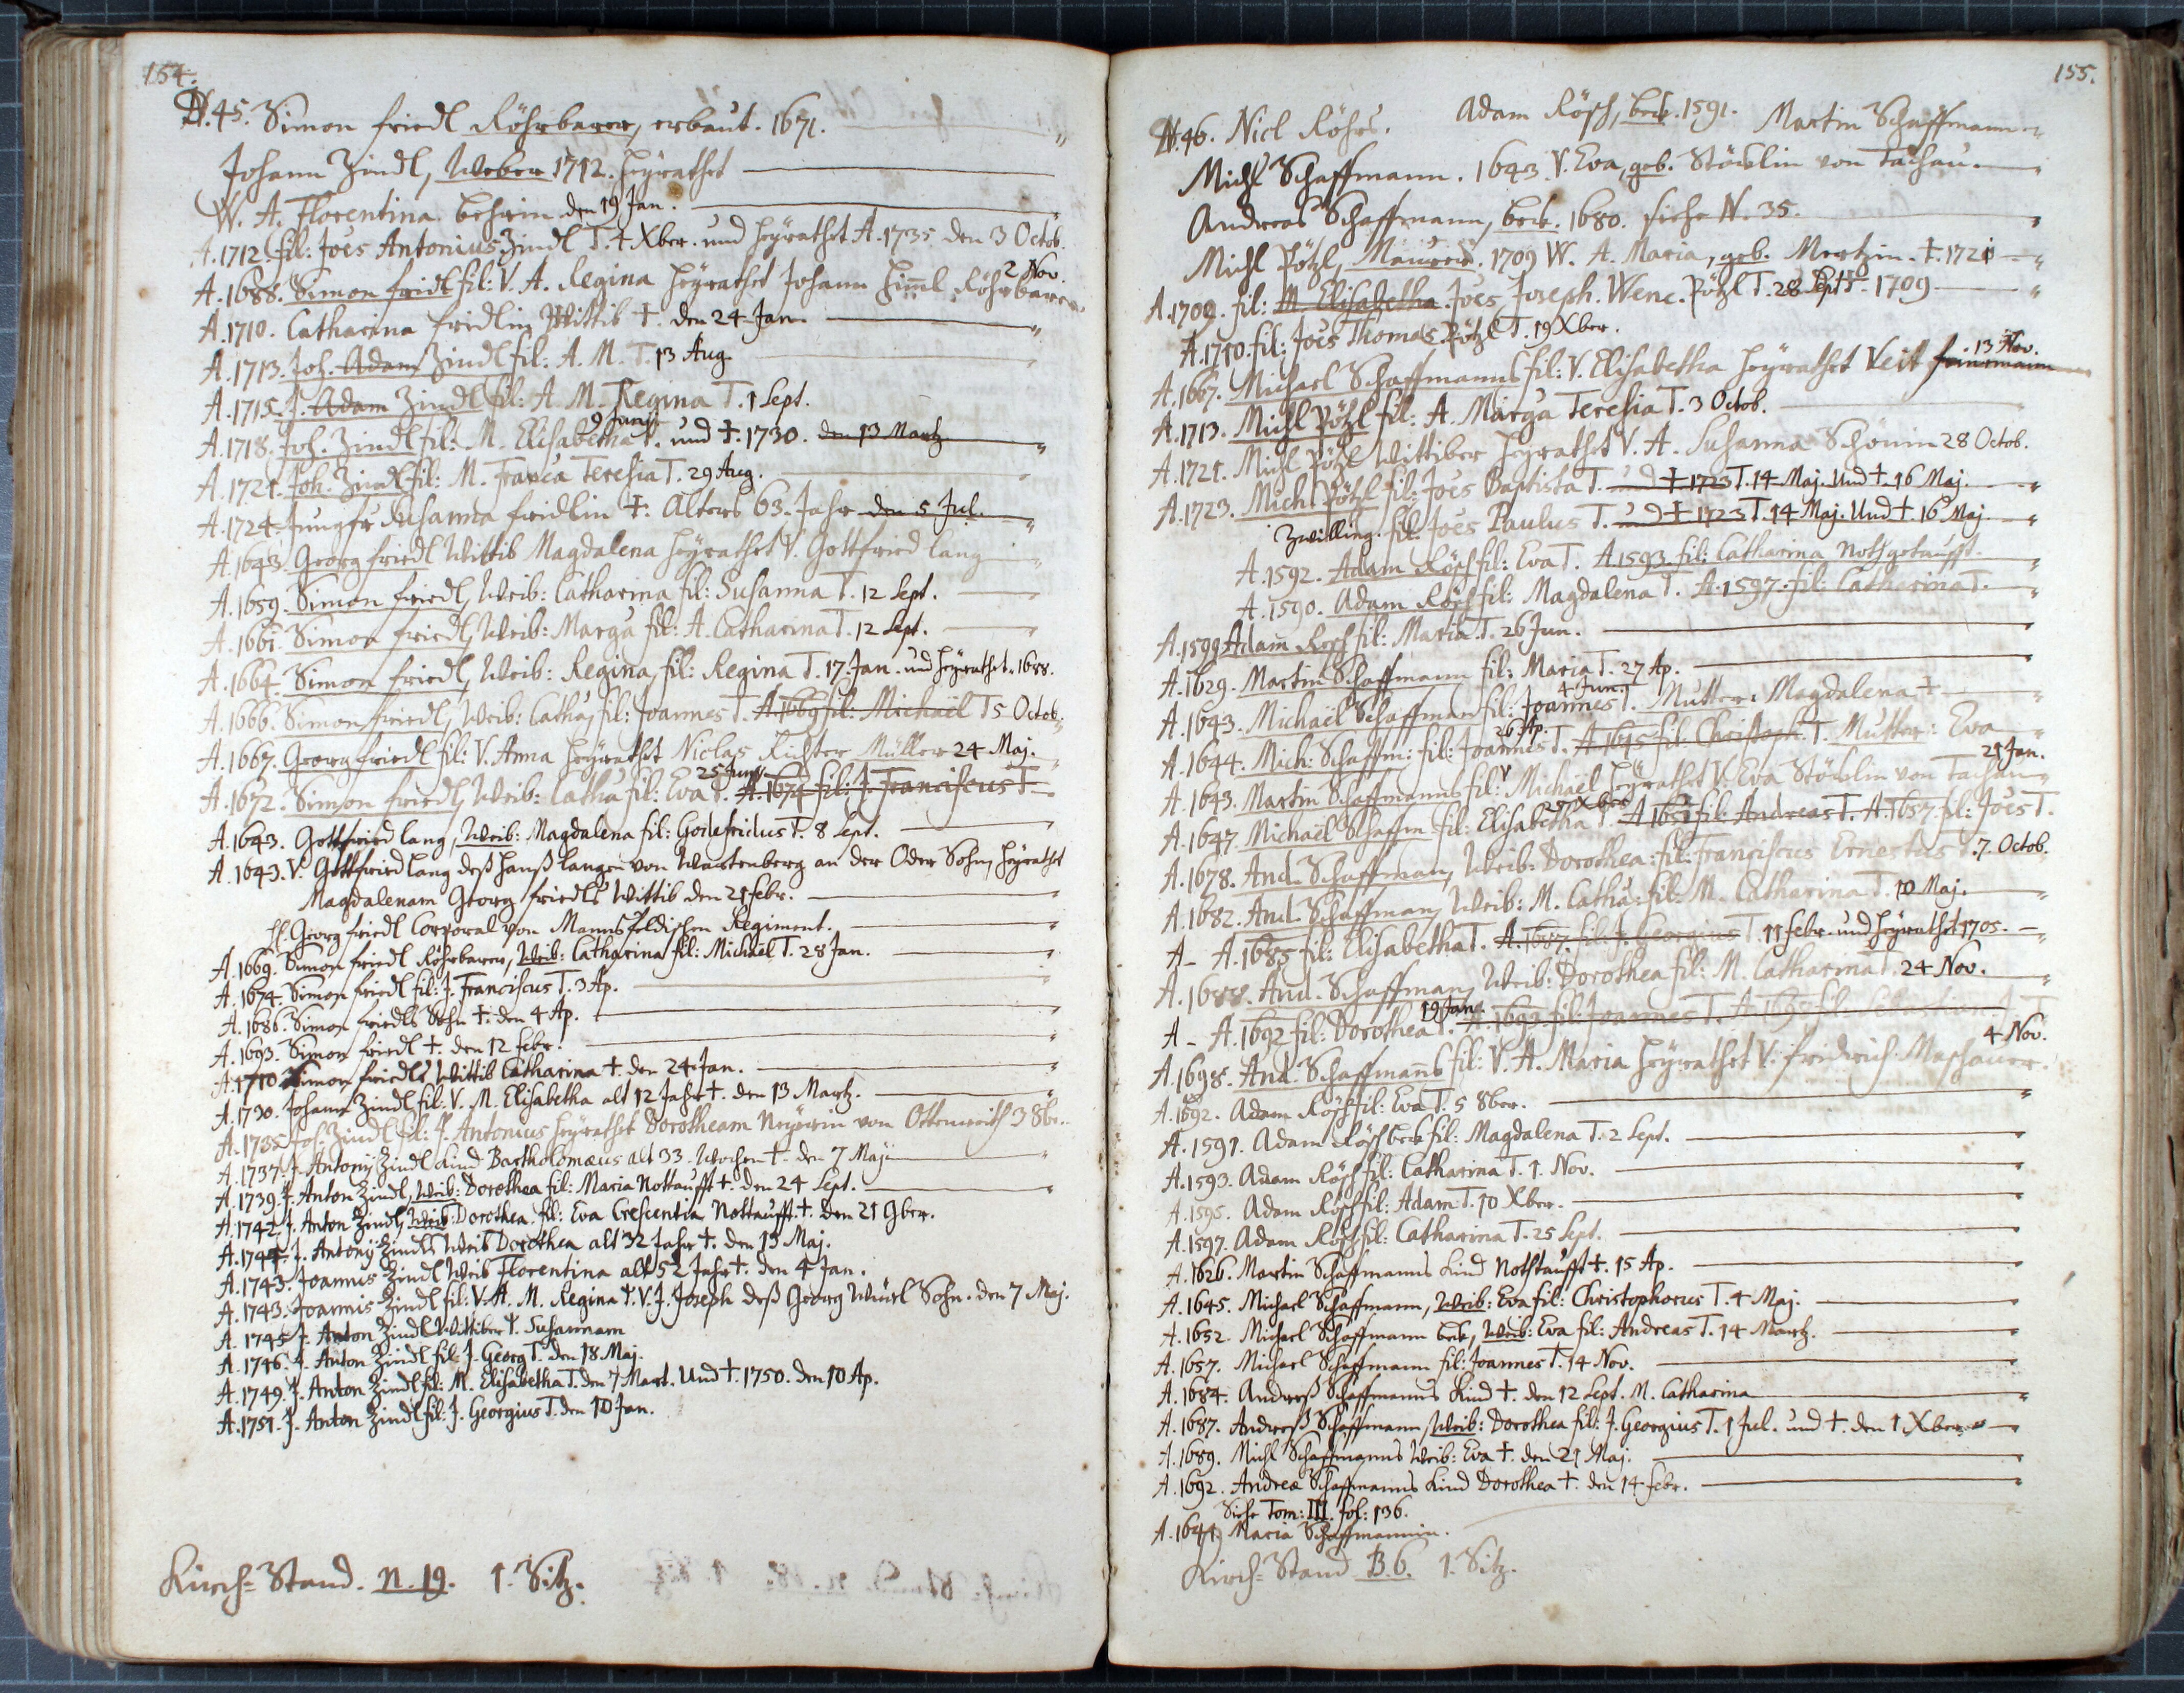 154.
N.45. Simon friedl Röhrbarer, erbaut. 1671.
Johann Zindl, Weber 1712. heyrathet
W. A. Florentina. Behrin den 19 Jan.
A.1712. fil: Joes Antonius Zindl T. 4 Xber. und heyrathet A. 1735 den 3 Octob.
2 Nov.
A.1688. Simon fridl fil: V. A. Regina heyrathet Johann Himl Röhrbarer
A.1710. Catharina fridlin Wittib †. den 24 Jan.
A.1713. Joh. Adam Zindl fil: A. M. T. 13 Aug.
A.1715. J. Adam Zindl fil: A. M. Regina T. 1 Sept.
9 Junij
A.1718. Joh. Zindl fil: M. Elisabetha T. und †. 1730. den 13 Martz
A.1721. Joh. Zindl fil: M. Franca Teresia T. 29 Aug.
A.1724. Jungfr Susanna fridlin †. Alters 63. Jahr den 5 Jul.
A.1643. Georg friedl Wittib Magdalena heyrathet V. Gottfried lang
A.1659. Simon friedl, Weib: Catharina fil: Susanna T. 12 Sept.
A.1661. Simon friedl, Weib: Marga fil: A. Catharina T. 12 Sept.
A.1664. Simon friedl, Weib: Regina, fil: Regina T. 17. Jan. und heyrathet. 1688.
A.1666. Simon friedl, Weib: Catha, fil: Joannes T. A.1669 fil: Michaël T 5 Octob.
A.1667. Georg friedl fil: V. Anna heyrathet Niclas Richter Müller 24 Maj.
25 Junij
A.1672. Simon friedl, Weib: Catha fil: Eva T. A.1674 fil: J. Franciscus T
A.1643. Gottfried lang, Weib: Magdalena fil: Godefridus T. 8 Sept.
A.1643. V. Gottfried lang deß Hanß langen von Wartenberg an der Oder Sohn, heyrathet
Magdalenam Georg friedls Wittib den 21 febr.
Georg friedl Corporal von Mannsfeldischen Regiment.
A.1669. Simon friedl Röhrbarer, Weib: Catharina fil: Michaël T. 28 Jan.
A.1674. Simon friedl fil: J. Franciscus T. 3 Ap.
A.1686. Simon friedls Sohn †. den 4 Ap.
A.1693. Simon friedl †. den 12 febr.
A.1710 Simon friedls Wittib Catharina †. den 24 Jan.
A.1730. Johann Zindl fil: V. M. Elisabetha alt 12 Jahr †. den 13 Martz.
A.1735 Joh. Zindl fil: J. Antonius heyrathet Dorotheam von 3 8br.
A.1737. J. Antonÿ Zindl Kind Bartholomæus alt 33. Wochen †. den 7 Maji
A.1739. J. Anton Zindl, Weib: Dorothea fil: Maria Nottaufft †. den 24 Sept.
A.1742. J. Anton Zindl, Weib: Dorothea fil: Eva Crescentia Nottaufft †. den 21 9ber.
A.1744. J. Antonÿ Zindls Weib Dorothea alt 32 Jahr †. den 13 Maj.
A.1743. Joannis Zindl Weib Florentina alt 52 Jahr †. den 4 Jan.
A.1743. Joannis Zindl fil: V. A. M. Regina T. V. J. Joseph deß Georg Würl Sohn. den 7 Maj.
A.1745 J. Anton Zindl Wittiber T. Susannam
A.1746. J. Anton Zindl fil: J. Georg T. den 18 Maj.
A.1749. J. Anton Zindl fil: M. Elisabetha T. den 7 Mart. Und †. 1750. den 10 Ap.
A.1751. J. Anton Zindl fil: J. Georgius T. den 10 Jan.
Kirch-Stand. n. 19. 1. Sitz.
155.
N.46. Nicl Röhrs. Adam Rösch, beck. 1591. Martin Schaffmann
Michl Schaffmann. 1643 V. Eva, geb. Stöcklin von Tachau.
Andreas Schaffmann, beck. 1680. siehe N. 35.
Michl Pötzl, Maürer. 1709 W. A. Maria, geb. Mertzin. †. 1721
A.1709. fil: M. Elisabetha. Joes Joseph. Wenc. Pötzl T. 28 Sept. 1709
A.1710. fil: Joes Thomas Pötzl T. 19 Xber.
13 Nov.
A.1667. Michael Schaffmanns fil: V. Elisabetha heyrathet Veit
A.1713. Michl Pötzl fil: A. Marga Teresia T. 3 Octob.
A.1721. Michl Pötzl Wittiber heyrathet V. A. Susanna Schönin 28 Octob.
A.1723. Mich. Pötzl fil: Joes Baptista T. und † 1723 T. 14 Maj. Und †. 16 Maj.
Zwilling. fil: Joes Paulus T. und † 1723 T. 14 Maj. Und †. 16 Maj.
A.1592. Adam Rösch fil: Eva T. A.1593. fil: Catharina Nothgetaufft.
A.1590. Adam Rösch fil: Magdalena T. A.1597. fil: Catharina T.
A.1599 Adam Rösch fil: Maria T. 26 Jun.
A.1629. Martin Schaffmann fil: Maria T. 27 Ap.
4 Jun.
A.1643. Michaël Schaffman fil: Joannes T. Mutter: Magdalena †
26 Ap.
A.1644. Mich: Schaffm: fil: Joannes T. A.1645 fil: Christoph T. Mutter: Eva
21 Jan.
A.1643. Martin Schaffmanns fil: V Michaël heyrathet V. Eva Stöcklin von Tachau
Xber
A.1647 Michaël Schaffm fil: Elisabetha T. A 1652 fil: Andreas T. A.1657. fil: Joes T.
A.1678. And. Schaffman, Weib: Dorothea: fil: Franciscus Ernestus T. 7. Octob.
A.1682. And. Schaffman, Weib: M. Catha: fil: M. Catharina T. 10 Maj.
A - A.1685 fil: Elisabetha T. A.1687. fil: J. Georgius T. 11 febr. und heyrathet 1705.
A.1688. And. Schaffman, Weib: Dorothea fil: M. Catharina T. 24 Nov.
19 Jan.
A - A.1692 fil: Dorothea T. A.1693 fil: Joannes T.
4 Nov.
A.1698. And. Schaffmanns fil: V. A. Maria heyrathet V. fridrich Maschauer.
A.1592. Adam Rösch fil: Eva T. 5 8ber.
A.1591. Adam Rösch beck fil: Magdalena T. 2 Sept.
A.1593. Adam Rösch fil: Catharina T. 1. Nov.
A.1595. Adam Rösch fil: Adam T. 10 Xber.
A.1597. Adam Rösch fil: Catharina T. 25 Sept.
A.1626. Martin Schaffmanns Kind Nothtaufft †. 15 Ap.
A.1645. Michael Schaffmann, Weib: Eva fil: Christophorus T. 4 Maj.
A.1652. Michael Schaffmann beck, Weib: Eva fil: Andreas T. 14 Martz.
A.1657. Michael Schaffmann fil: Joannes T. 14 Nov.
A.1684. Andreß Schaffmanns Kind †. den 12 Sept. M. Catharina
A.1687. Andreß Schaffmann, Weib: Dorothea fil: J. Georgius T. 1 Jul. und †. den 1 Xber
A.1689. Michl Schaffmanns Weib: Eva †. den 21 Maj.
A.1692. Andreæ Schaffmanns Kind Dorothea †. den 14 febr.
Siehe Tom: III. fol: 136.
A. Maria Schaffmannin.
Kirch-Stand B. 6. 1. Sitz.